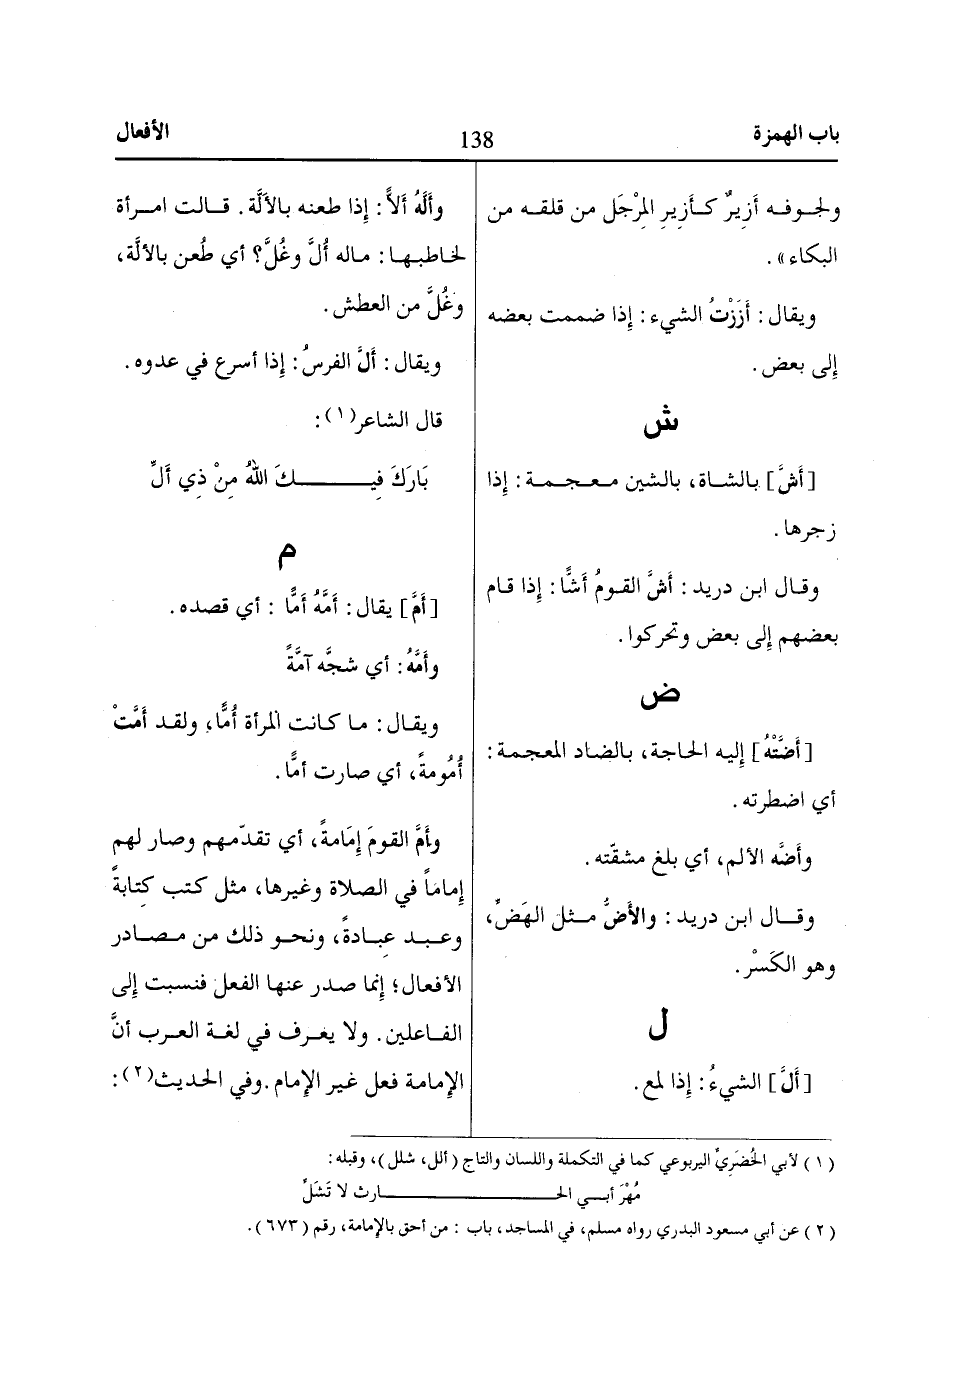 باب الهمزة
138
الأفعال
ولجوفه أزيرٌ كأزيرِ المِرْجَل من قلقه من
البكاء» .
ويقال : أزَزْتُ الشيء : إذا ضممت بعضه
إلى بعض .
ش
[أشَّ] بالشاة، بالشين معجمة : إذا
زجرها .
وقال ابن دريد : أشَّ القومُ أشًّا : إذا قام
بعضهم إلى بعض وتحركوا .
ض
[أضَّتْهُ] إليه الحاجة، بالضاد المعجمة :
أي اضطرته .
وأضَّه الألم، أي بلغ مشقّته .
وقال ابن دريد : والأضُّ مثل الهَضِّ،
وهو الكَسْر .
ل
[ألَّ] الشيءُ : إذا لمع .
وألَّهُ ألاًّ : إذا طعنه بالألَّة . قالت امرأة
لخاطبها : ماله أُلَّ وغُلَّ؟ أي طُعن بالألَّة،
وغُلَّ من العطش .
ويقال : ألَّ الفرسُ : إذا أسرع في عدوه .
قال الشاعر(١) :
بَارَكَ فِيـــــكَ اللهُ مِنْ ذي ألِّ
م
[أمَّ] يقال : أمَّهُ أمًّا : أي قصده .
وأمَّهُ : أي شجَّه آمَّةً
ويقال : ما كانت المرأة أُمًّا، ولقد أمَّتْ
أُمُومةً، أي صارت أمًّا .
وأمَّ القومَ إِمَامةً، أي تقدّمهم وصار لهم
إِمامَاً في الصلاة وغيرها، مثل كتب كِتابةً
وعبد عِبادةً، ونحو ذلك من مصادر
الأفعال؛ إنما صدر عنها الفعل فنسبت إلى
الفاعلين . ولا يعرف في لغة العرب أنَّ
الإمامة فعل غير الإمام . وفي الحديث(٢) :
(١) لأبي الخُضَرِيِّ اليربوعي كما في التكملة واللسان والتاج (ألل، شلل)، وقبله :
مُهْرَ أبــي الحــــــــــــارث لا تَشَلِّ
(٢) عن أبي مسعود البدري رواه مسلم، في المساجد، باب : من أحق بالإمامة، رقم (٦٧٣) .